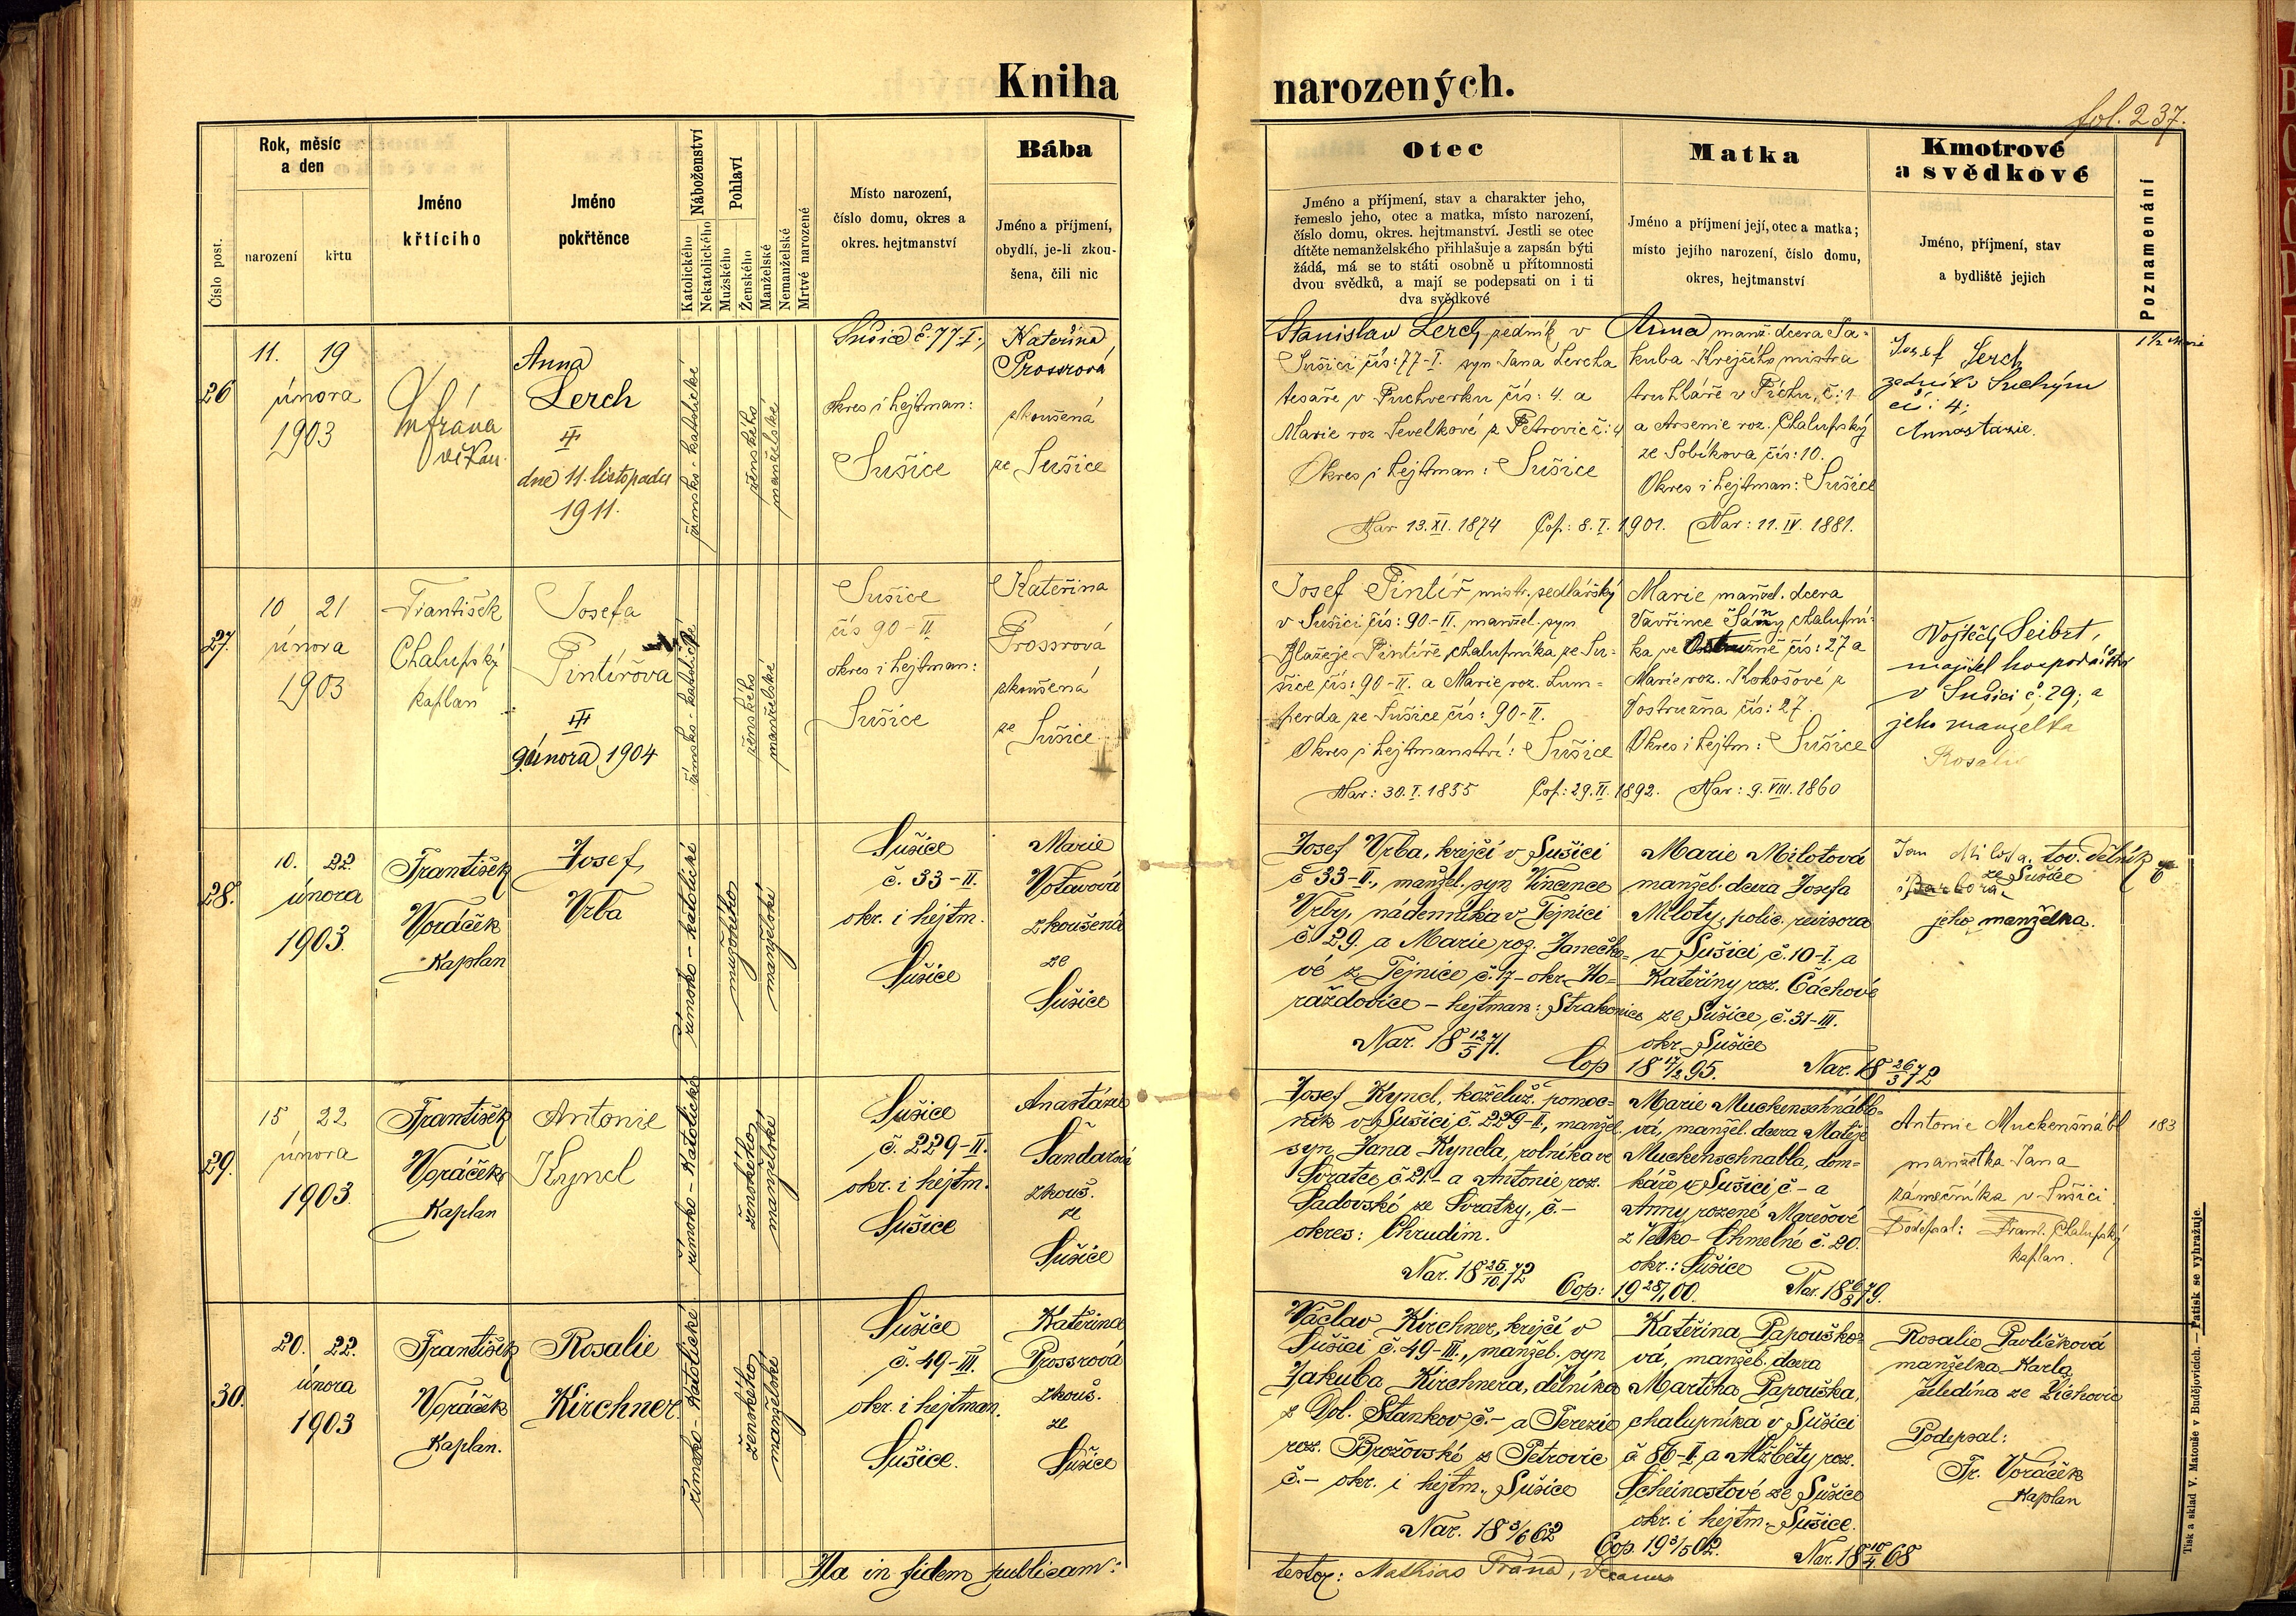 Kniha narozených.
fol. 237.
Číslo post.
Rok, měsíc
a den
narození
křtu
Jméno
křtícího
Jméno
pokřtěnce
Náboženství
Katolického
Nekatolického
Pohlaví
Mužského
Ženského
Manželské
Nemanželské
Mrtvě narozené
Místo narození,
číslo domu, okres a
okres. hejtmanství
Bába
Jméno a příjmení,
obydlí, je-li zkou-
šena, čili nic
Otec
Jméno a příjmení, stav a charakter jeho,
řemeslo jeho, otec a matka, místo narození,
číslo domu, okres. hejtmanství. Jestli se otec
dítěte nemanželského přihlašuje a zapsán býti
žádá, má se to státi osobně u přítomnosti
dvou svědků, a mají se podepsati on i ti
dva svědkové
Matka
Jméno a příjmení její, otec a matka;
místo jejího narození, číslo domu,
okres, hejtmanství
Kmotrové
a svědkové
Jméno, příjmení, stav
a bydliště jejich
Poznamenání
26
11. 19
února
1903
Fráňa
vikař.
Anna
Lerch
III
dne 11. listopadu
1911.
římsko-katolické
ženského
manželské
Sušice č. 77-I.,
okres i hejtman:
Sušice
Kateřina
Prossrová
zkoušená
ze Sušice
Stanislav Lerch, zedník v
Sušici čís: 77-I. syn Jana Lercha
tesaře v Puchverku čís: 4. a
Marie roz Sevelkové z Petrovic č: 4
Okres i hejtman: Sušice
Nar 13. XI. 1874 Cop: 8. I. 1901. Nar: 11. IV. 1881.
Anna manž. dcera Ja-
kuba Krejčího mistra
truhláře v Píchu, č: 1
a Arsenie roz. Chalupský
ze Sobíkova čís: 10.
Okres i hejtman: Sušice
Josef Lerch
zedník v Suchým
čís: 4;
Annastázie.
27.
10 21
února
1903
František
Chalupský
kaplan
Josefa
Pintířova
III
9. února 1904
římsko-katolické
ženského
manželské
Sušice
čís 90-II
okres i hejtman:
Sušice
Kateřina
Prossrová
zkoušená
ze
Sušice
Josef Pintíř mistr. sedlářský
v Sušici čís: 90-II. manžel. syn
Blažeje Pintíře, chalupníka ze Su-
šice čís: 90-II. a Marie roz. Lum-
perda ze Sušice, čís: 90-II.
Okres i hejtmanství: Sušice
Nar: 30. I. 1855 Cop: 29. II. 1892. Nar: 9. VIII. 1860
Marie manžel. dcera
Vavřince Šány, chalupní-
ka ve Ostružně čís: 27 a
Marie roz. Kokošové z
Vostružna čís: 27.
Okres i hejtm: Sušice
Vojtěch Seibrt,
majitel hospodářství
v Sušici č. 29; a
jeho manželka
Rosalie
28.
10. 22.
února
1903.
František
Voráček
Kaplan
Josef,
Vrba
římsko-katolické
mužského
manželské
Sušice
č. 33-II.
okr. i hejtm.
Sušice
Marie
Votavová
zkoušená
ze
Sušice
Josef Vrba, krejčí v Sušici
č 33-II., manžel. syn Vincence
Vrby, nádenníka v Tejnici
č. 29. a Marie roz. Janečko-
vé z Tejnice č. 17- okr. Ho-
raždovice - hejtman: Strakonice
Nar. 18 12/5 71.
Cop 18 17/2 95. Nar. 18 26/3 72
Marie Milotová
manžel. dcera Josefa
Miloty, polic. revisora
v Sušici č. 10-I. a
Kateřiny roz. Čáchové
ze Sušice, č. 31-III.
okr Sušice
Jan Milota, tov. dělník
ze Sušice
i Barbora,
jeho manželka.
29.
15 22
února
1903.
František
Voráček
Kaplan
Antonie
Kyncl
římsko-katolické
ženského
manželské
Sušice
č. 229-II.
okr. i hejtm.
Sušice
Anastázie
Šandarová
zkouš.
ze
Sušice
Josef Kyncl, koželuž. pomoc-
ník v Sušici č. 229-II., manžel.
syn Jana Kyncla, rolníka ve
Svratce č. 21.- a Antonie roz.
Sadovské ze Svratky, č.-
okres: Chrudim.
Nar. 18 25/10 72 Cop: 19 28/1 00. Nar. 18 6/8 79.
Marie Muckenschnáblo-
vá, manžel. dcera Matěje
Muckenschnabla, dom-
káře v Sušici č.- a
Anny rozené Marešové
z Velko-Chmelné č. 20.
okr.: Sušice
Antonie Muckenšnábl
manželka Jana
zámečníka v Sušici
Podepsal: Frant. Chalupský
kaplan.
183
30.
20. 22.
února
1903
František
Voráček
Kaplan.
Rosalie
Kirchner
římsko-katolické
ženského
manželské
Sušice
č. 49-III.
okr. i hejtman.
Sušice.
Kateřina
Prossrová
zkouš.
ze
Sušice
Václav Kirchner, krejčí v
Sušici č. 49-III., manžel. syn
Jakuba Kirchnera, dělníka
z Dol. Stankov č.- a Terezie
roz. Brožovské z Petrovic
č.- okr. i hejtm. Sušice
Nar. 18 3/6 62 Cop. 19 3/5 02. Nar. 18 10/4 68
Kateřina Papouško-
vá, manžel. dcera
Martina Papouška,
chalupníka v Sušici
č 86-II. a Alžběty roz.
Scheinostové ze Sušice
okr. i hejtm. Sušice.
Rosalie Pavlíčková
manželka Karla
čeledína ze Žichovic
Podepsal:
Fr. Voráček
Kaplan
Ita in fidem publicam:
testor: Mathias Fráňa, Decanus
Tisk a sklad V. Matouše v Budějovicích. — Patisk se vyhražuje.